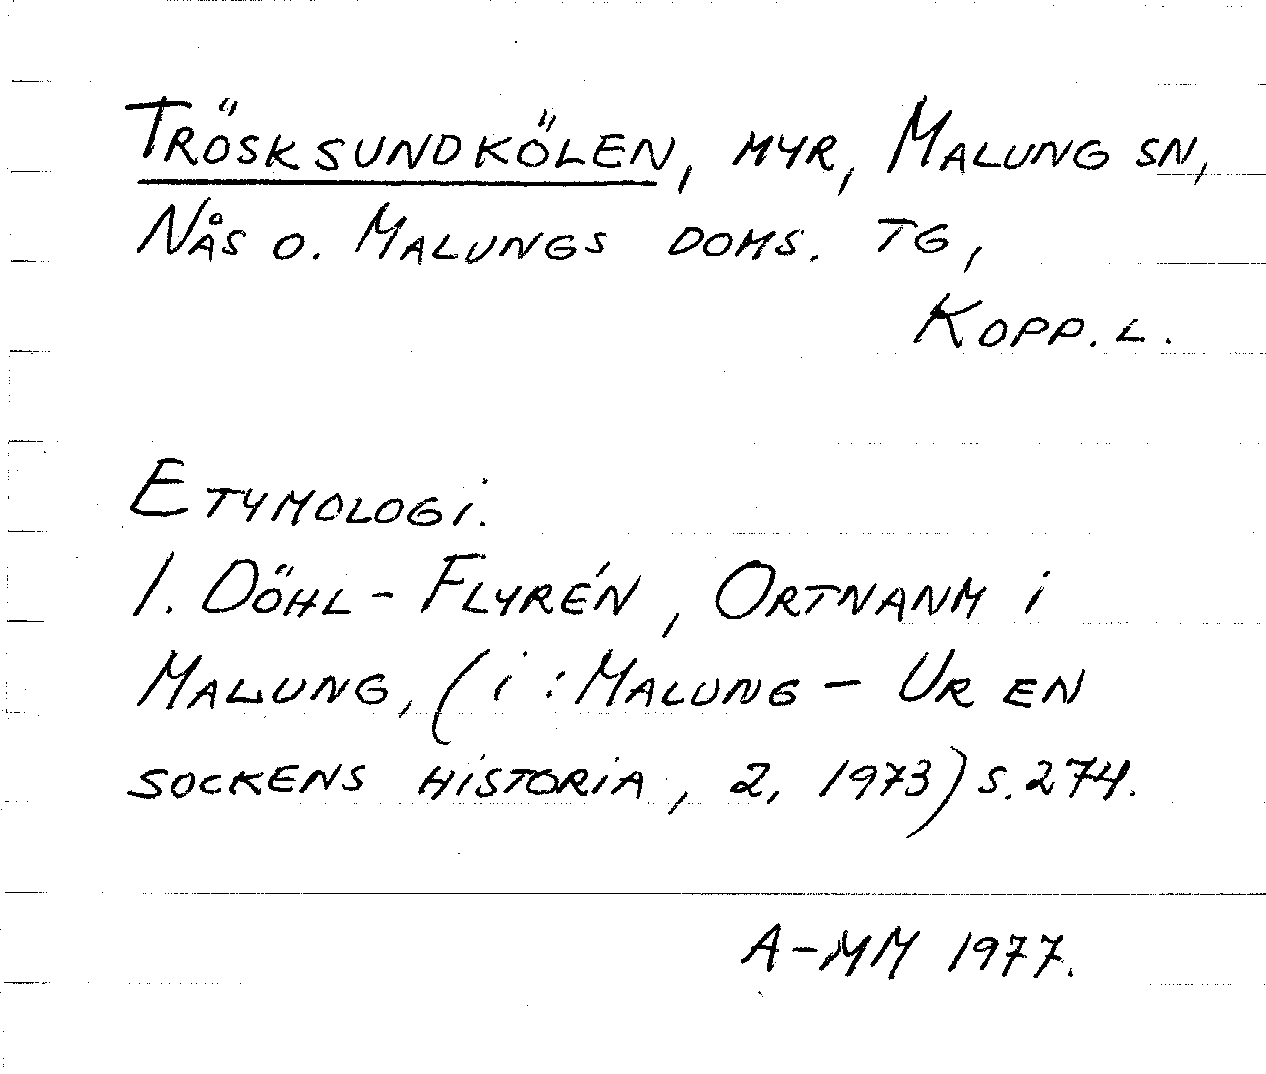 TRÖSKSUNDKÖLEN, MYR, MALUNG SN,
NÅS O. MALUNGS DOMS. TG,
KOPP. L.
ETYMOLOGI.
I. DÖHL-FLYRÉN, ORTNANM I
MALUNG, (I: MALUNG - UR EN
SOCKENS HISTORIA, 2, 1973) S. 274.
A-MM 1977.